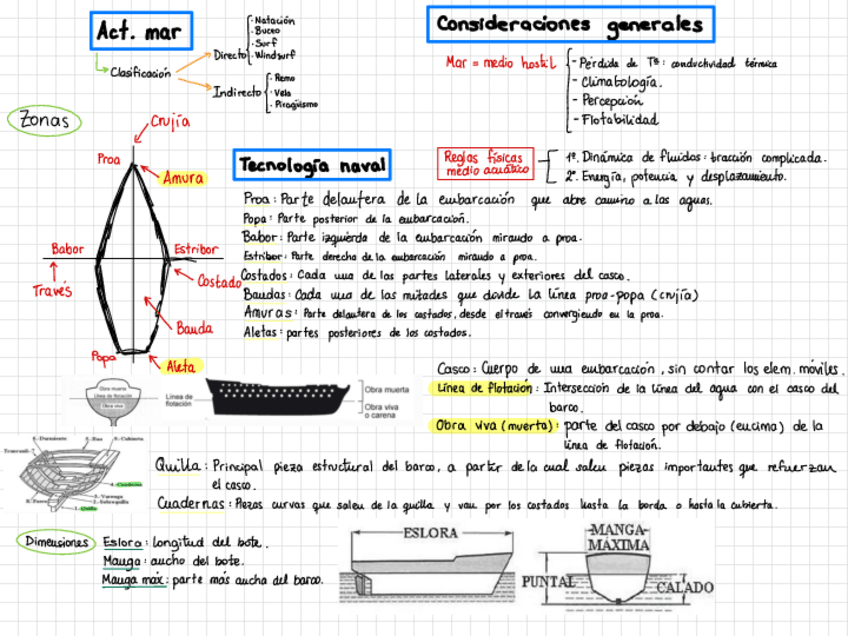 Act. mar
Clasificación
Directo
- Natación
- Buceo
- Surf
- Windsurf
Indirecto
- Remo
- Vela
- Piragüismo
Consideraciones generales
Mar = medio hostil
- Pérdida de Tª: conductividad térmica
- Climatología.
- Percepción
- Flotabilidad
Zonas
Crujía
Proa
Amura
Babor
Estribor
Través
Costado
Banda
Popa
Aleta
Tecnología naval
Reglas físicas
medio acuático
1º. Dinámica de fluidos: tracción complicada.
2º. Energía, potencia y desplazamiento.
Proa: Parte delantera de la embarcación que abre camino a las aguas.
Popa: Parte posterior de la embarcación.
Babor: Parte izquierda de la embarcación mirando a proa.
Estribor: Parte derecha de la embarcación mirando a proa.
Costados: Cada una de las partes laterales y exteriores del casco.
Bandas: Cada una de las mitades que divide la línea proa-popa (crujía)
Amuras: Parte delantera de los costados, desde el través convergiendo en la proa.
Aletas: partes posteriores de los costados.
Casco: Cuerpo de una embarcación, sin contar los elem. móviles.
Línea de flotación: Intersección de la línea del agua con el casco del
barco.
Obra viva (muerta): parte del casco por debajo (encima) de la
línea de flotación.
Obra muerta
Línea de flotación
Obra viva
Línea de
flotación
Obra muerta
Obra viva
o carena
Quilla: Principal pieza estructural del barco, a partir de la cual salen piezas importantes que refuerzan
el casco.
Cuadernas: Piezas curvas que salen de la quilla y van por los costados hasta la borda o hasta la cubierta.
Dimensiones
Eslora: longitud del bote.
Manga: ancho del bote.
Manga máx: parte más ancha del barco.
ESLORA
MANGA
MÁXIMA
PUNTAL
CALADO